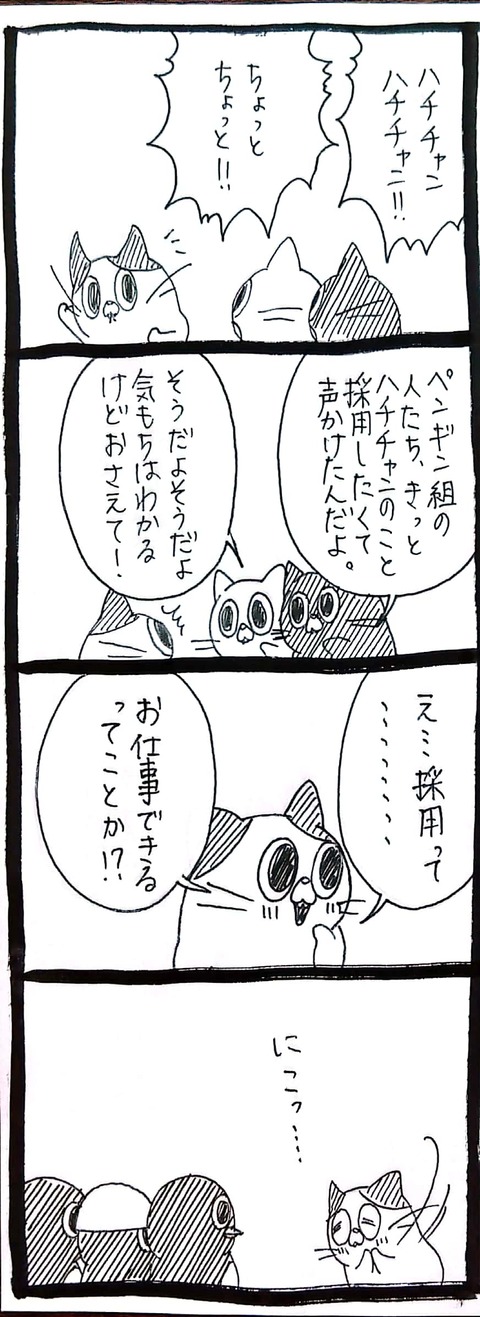 ハチチャン
ハチチャン!!
ちょっと
ちょっと!!
ペンギン組の
人たち、きっと
ハチチャンのこと
採用したくて
声かけたんだよ。
そうだよそうだよ
気もちはわかる
けどおさえて!
え…採用って
………
お仕事できる
ってことか!?
にこっ…